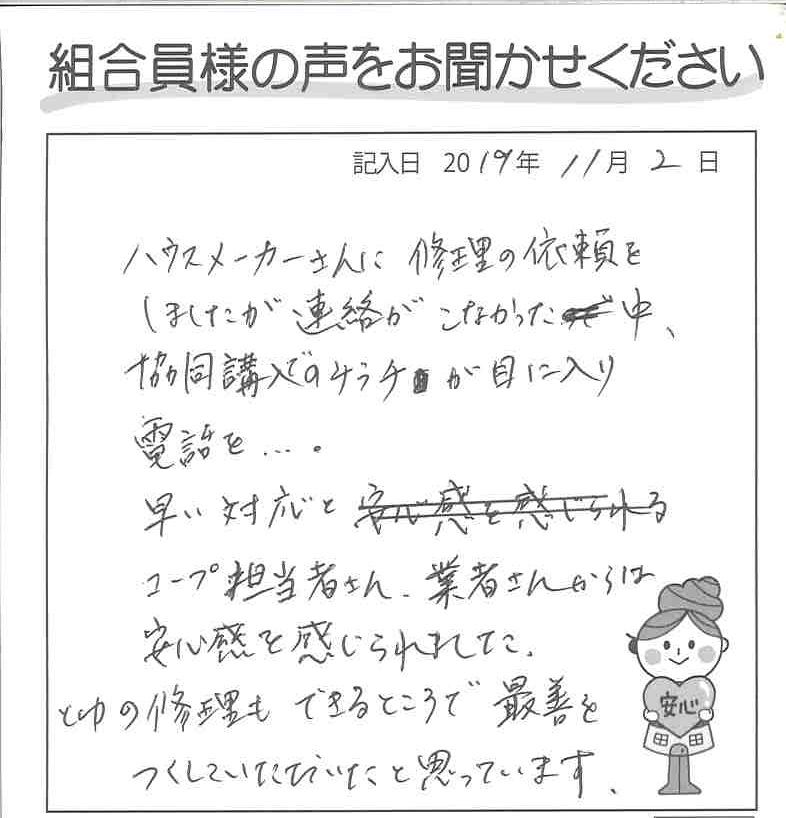 組合員様の声をお聞かせください
記入日 2019年 11月 2日
ハウスメーカーさんに 修理の依頼を
しましたが 連絡が こなかった 中、
協同講入でのチラチ が目に入り
電話を…。
早い対応と 安心感を感じられる
コープ担当者さん、業者さんからは
安心感を感じられました。
といの修理も できるところで 最善を
つくしていただいたと思っています、
安心